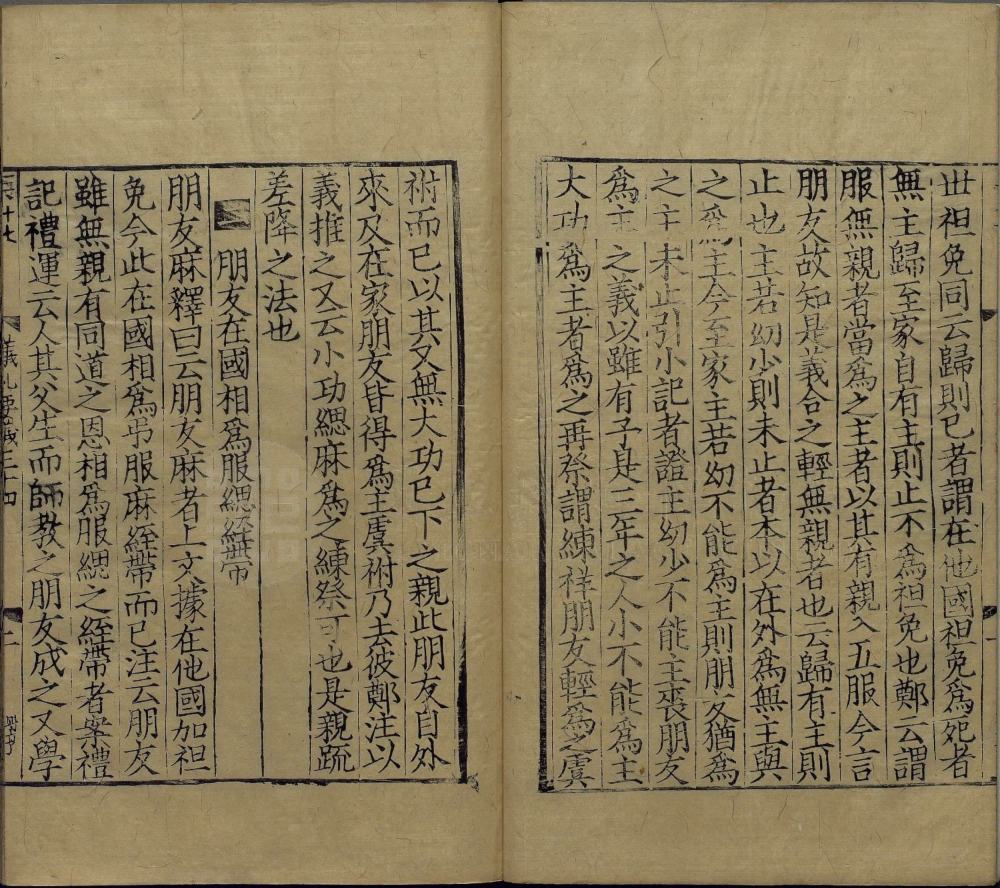 世袒免同云歸則已者謂在他國袒免爲死者
無主歸至家自有主則止不爲袒免也鄭云謂
服無親者當爲之主者以其有親入五服今言
朋友故知是義合之輕無親者也云歸有主則
止也主若幼少則未止者本以在外爲無主與
之爲主今至家主若幼不能爲主則朋友猶爲
之主未止引小記者證主幼少不能主喪朋友
爲主之義以雖有子是三年之人小不能爲主
大功爲主者爲之再祭謂練祥朋友輕爲之虞
祔而已以其又無大功已下之親此朋友自外
來及在家朋友皆得爲主虞祔乃去彼鄭注以
義推之又云小功緦麻爲之練祭可也是親疏
差降之法也
二 朋友在國相爲服緦絰帶
朋友麻釋曰云朋友麻者上文據在他國加袒
免今此在國相爲弔服麻絰帶而已注云朋友
雖無親有同道之恩相爲服緦之絰帶者案禮
記禮運云人其父生而師教之朋友成之又學
儀礼要義三十四
二